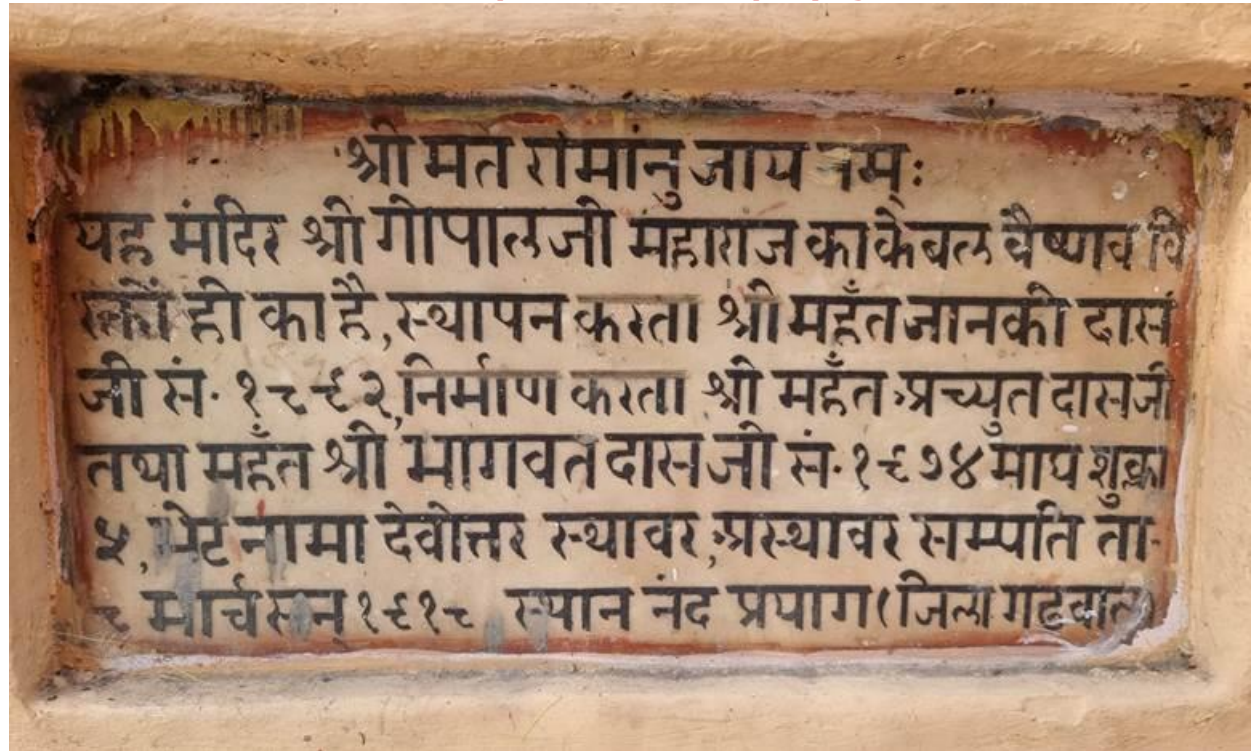 श्री मते रामांनुजाय नम्ः
यह मंदिर श्री गोपालजी मंहाराज का केबल वैष्णव वि
रक्तों ही का है, स्थापन करता श्री महँत जानकी दास
जी सं॰ १८९२, निर्माण करता श्री महँत अच्युत दासजी
तथा महँत श्री भागवत दासजी सं॰ १९७४ माघ शुक्ला
५, भेट नामा देवोत्तर स्थावर, अस्थावर सम्पति ता॰
८ मार्च सन् १९१८ स्थान नंद प्रयाग (जिला गढवाल)